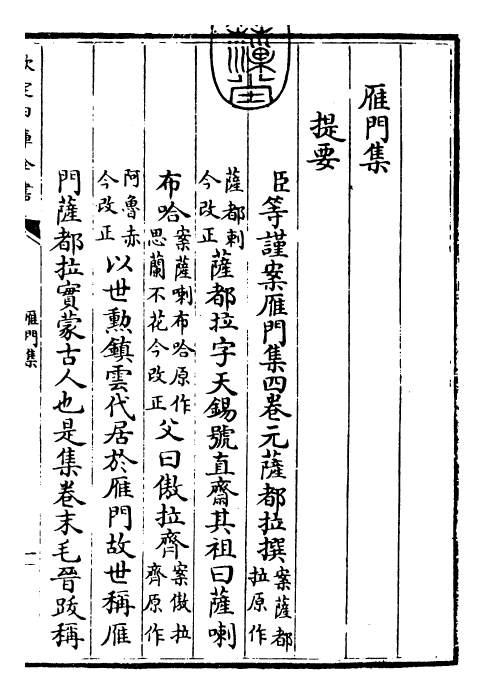 雁門集
提要
臣等謹案雁門集四卷元薩都拉撰案薩都拉原作
薩都剌今改正薩都拉字天錫號直齋其祖曰薩喇
布哈案薩喇布哈原作思蘭不花今改正父曰傲拉齊案傲拉齊原作
阿魯赤今改正以世勲鎮雲代居於雁門故世稱雁
門薩都拉實蒙古人也是集卷末毛晉跋稱
欽定四庫全書
雁門集
一